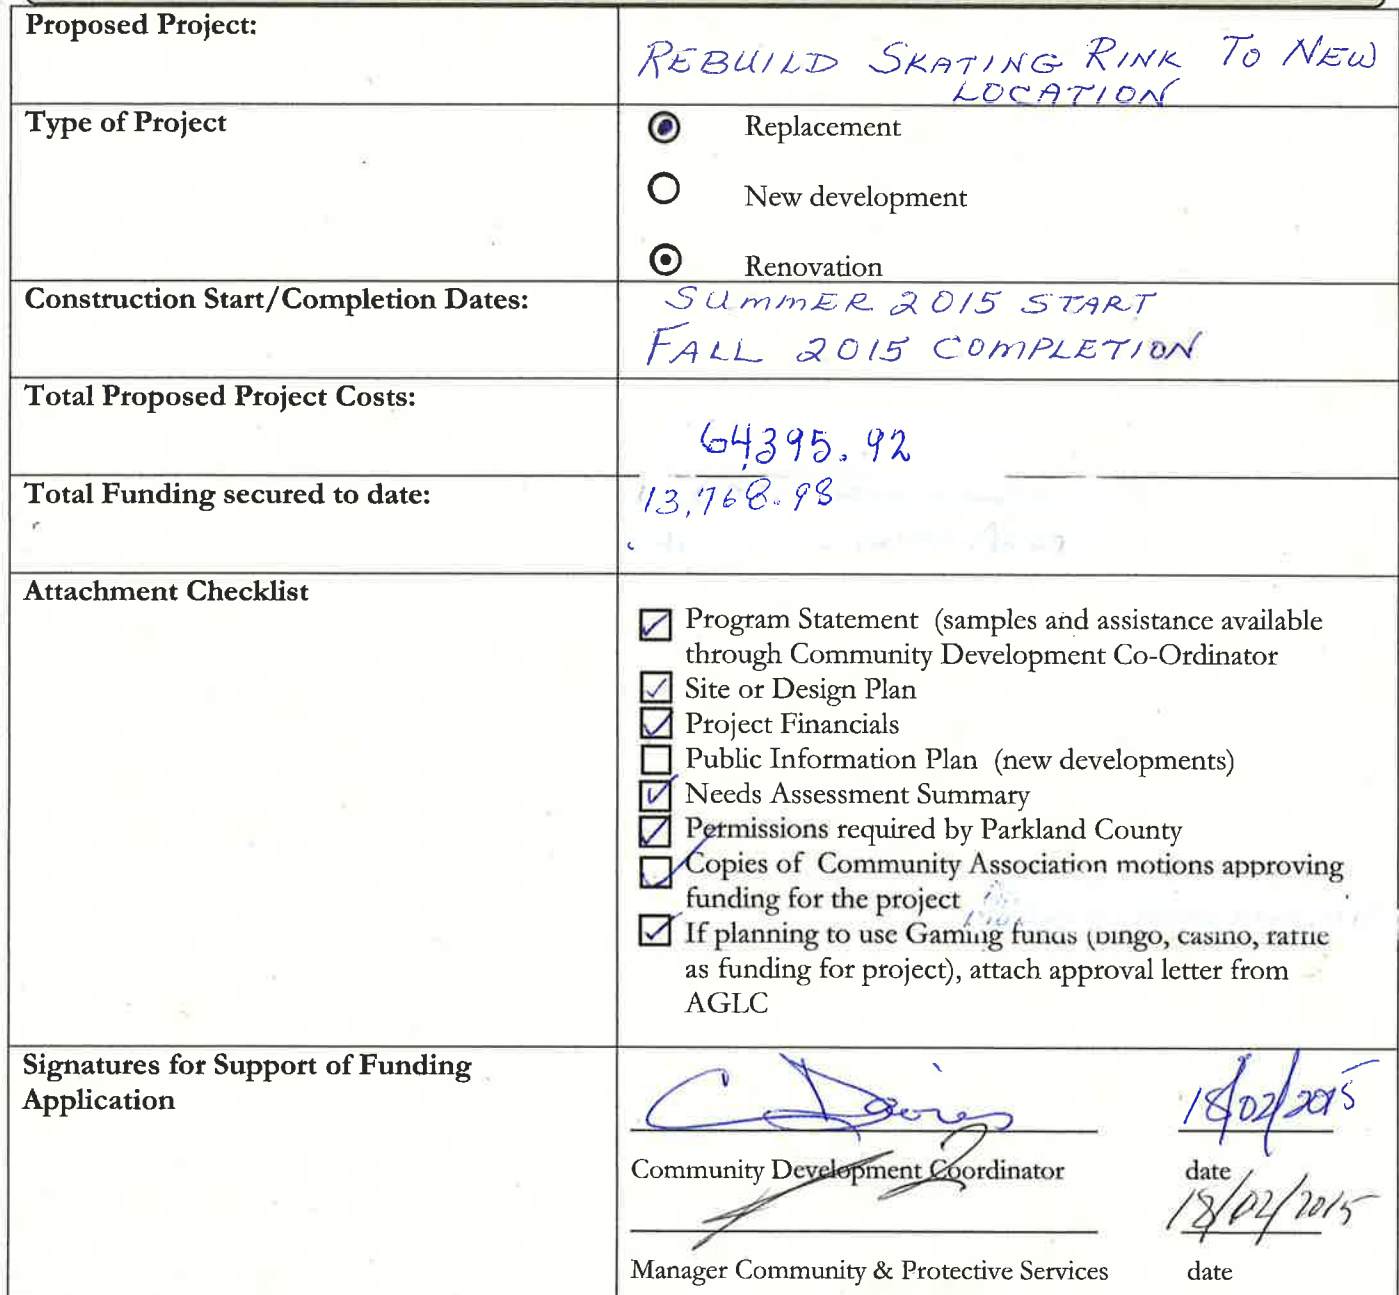 Proposed Project:
REBUILD SKATING RINK TO NEW
LOCATION
Type of Project
Replacement
New development
Renovation
Construction Start/Completion Dates:
SUMMER 2015 START
FALL 2015 COMPLETION
Total Proposed Project Costs:
64395.92
Total Funding secured to date:
13,768.98
Attachment Checklist
Program Statement (samples and assistance available
through Community Development Co-Ordinator
Site or Design Plan
Project Financials
Public Information Plan (new developments)
Needs Assessment Summary
Permissions required by Parkland County
Copies of Community Association motions approving
funding for the project
If planning to use Gaming funds (bingo, casino, raffle
as funding for project), attach approval letter from
AGLC
Signatures for Support of Funding
Application
18/02/2015
Community Development Coordinator date
18/02/2015
Manager Community & Protective Services date